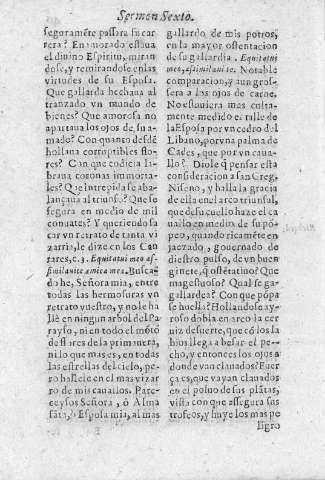 Sermon Sexto.
seguramẽte passara su car
rera? Enamorado estaua
el diuino Espiritu, miran
dose, y remirandose en las
virtudes de su Esposa.
Que gallarda hechaua al
tranzado vn mundo de
bienes? Que amorosa no
apartaua los ojos de su a-
mado? Con quanto desdẽ
hollaua corruptibles flo-
res? Con que codicia la-
braua coronas immorta-
les? Q̃ intrepida se aba-
lançaua al triunfo? Que se
segura en medio de mil
conuates? Y queriendo sa
car vn retrato de tanta vi
zarria, le dize en los Can
tares, c. 1. Equitatui meo as-
similauite amica mea. Busca
do he, Señora mia, entre
todas las hermosuras vn
retrato vuestro, y no le ha
llè en ningun arbol del Pa
rayso, ni en todo el mõtõ
de flores de la primauera,
ni lo que mas es, en todas
las estrellas del cielo, pe-
ro hallele en el mas vizar
ro de mis cauallos. Pare-
ceysos Señora, ò Alma
sãta, ò Esposa mia, al mas
gallardo de mis potros,
en la mayor ostentacion
de su gallardia. Equitatui
meo, assimilaui te. Notable
comparacion, y aun gros-
sera a los ojos de carne.
No estuuiera mas culta-
mente medido el talle de
la Esposa por vn cedro del
Libano, por vna palma de
Cades, que por vn caua-
llo? Diole q̃ pensar esta
consideracion a san Greg.
Niseno, y halla la gracia
de ella en el arco triunfal,
que de su cuello haze el ca
uallo en medio de su pò-
peo, quando ricamẽte en
jaezado, gouernado de
diestro pulso, de vn buen
ginete, q̃ ostẽtatiuo? Que
magestuoso? Qual se ga-
gallardea? Con que põpa
se huella? Hollandose ay-
roso dobla en arco la cer
uiz de suerte, que cõ los la
bios llega a besar el pe-
cho, y entonces los ojos a
donde van clauados? Fuer
ça es, que vayan clauados
en el poluo de sus plãtas,
vista con que assegura sus
trofeos, y huye los mas pe
ligro